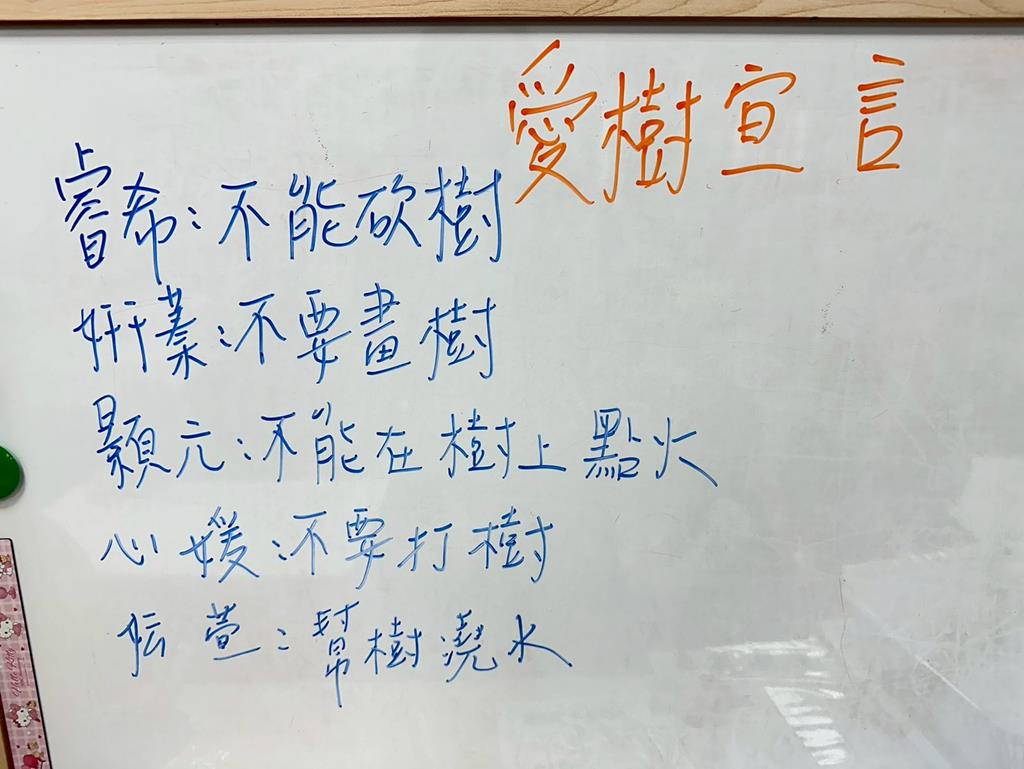 愛樹宣言
睿希:不能砍樹
姸蓁:不要畫樹
顥元:不能在樹上點火
心媛:不要打樹
萱:幫樹澆水